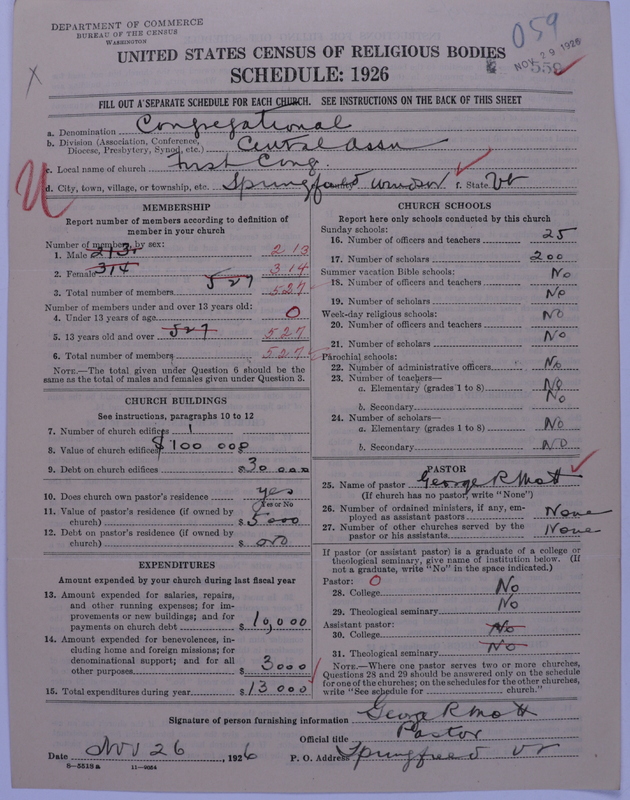 DEPARTMENT OF COMMERCE
BUREAU OF THE CENSUS
WASHINGTON
059
NOV 29 1926
UNITED STATES CENSUS OF RELIGIOUS BODIES
SCHEDULE: 1926
X
FILL OUT A SEPARATE SCHEDULE FOR EACH CHURCH. SEE INSTRUCTIONS ON THE BACK OF THIS SHEET
a. Denomination Congregational
b. Division (Association, Conference, Diocese, Presbytery, Synod, etc.) Central Assn
c. Local name of church First Cong.
d. City, town, village, or township, etc. Springfield Windsor f. State Vt
MEMBERSHIP
Report number of members according to definition of member in your church
Number of members by sex:
1. Male 213 213
2. Female 314 314
3. Total number of members 527 527
Number of members under and over 13 years old:
4. Under 13 years of age 0
5. 13 years old and over 527 527
6. Total number of members 527
NOTE.—The total given under Question 6 should be the same as the total of males and females given under Question 3.
CHURCH BUILDINGS
See instructions, paragraphs 10 to 12
7. Number of church edifices 1
8. Value of church edifices $100 000
9. Debt on church edifices $30 000
10. Does church own pastor's residence yes
Yes or No
11. Value of pastor's residence (if owned by church) $5000
12. Debt on pastor's residence (if owned by church) $ no
EXPENDITURES
Amount expended by your church during last fiscal year
13. Amount expended for salaries, repairs, and other running expenses; for improvements or new buildings; and for payments on church debt $10,000
14. Amount expended for benevolences, including home and foreign missions; for denominational support; and for all other purposes $3000
15. Total expenditures during year $13 000
CHURCH SCHOOLS
Report here only schools conducted by this church
Sunday schools:
16. Number of officers and teachers 25
17. Number of scholars 200
Summer vacation Bible schools:
18. Number of officers and teachers No
19. Number of scholars No
Week-day religious schools:
20. Number of officers and teachers No
21. Number of scholars No
Parochial schools:
22. Number of administrative officers No
23. Number of teachers—
a. Elementary (grades 1 to 8) No
b. Secondary No
24. Number of scholars—
a. Elementary (grades 1 to 8) No
b. Secondary No
PASTOR
25. Name of pastor George R Mott
(If church has no pastor, write "None")
26. Number of ordained ministers, if any, employed as assistant pastors None
27. Number of other churches served by the pastor or his assistants None
If pastor (or assistant pastor) is a graduate of a college or theological seminary, give name of institution below. (If not a graduate, write "No" in the space indicated.)
Pastor: 0
28. College No
29. Theological seminary No
Assistant pastor:
30. College No
31. Theological seminary No
NOTE.—Where one pastor serves two or more churches, Questions 28 and 29 should be answered only on the schedule for one of the churches; on the schedules for the other churches, write "See schedule for church."
Signature of person furnishing information George R Mott
Official title Pastor
Date Nov 26, 1926 P. O. Address Springfield Vt
8—5518 a 11—9054